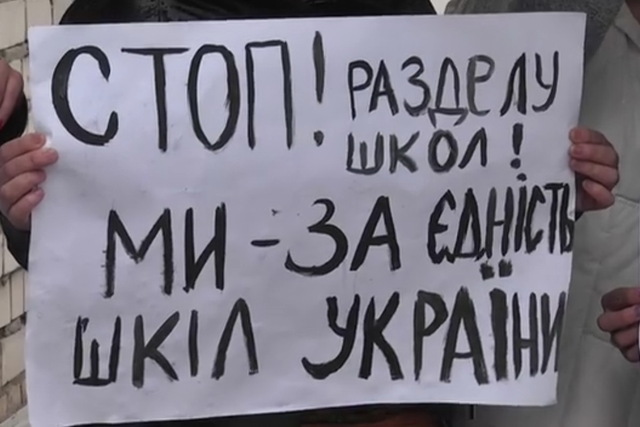 СТОП! РАЗДЕЛУ
ШКОЛ!
МИ - ЗА ЄДНІСТЬ
ШКІЛ УКРАЇНИ